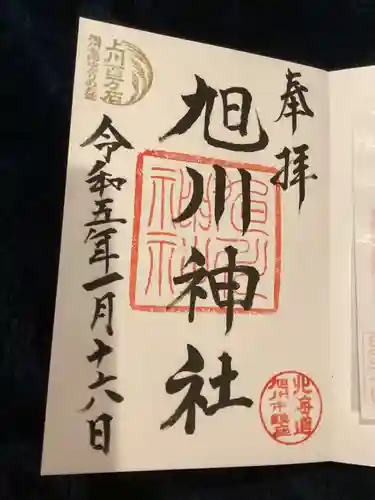 奉拝
旭川神社
令和五年一月十六日
上川百万石
旭川神社
北海道
旭川市鎮座